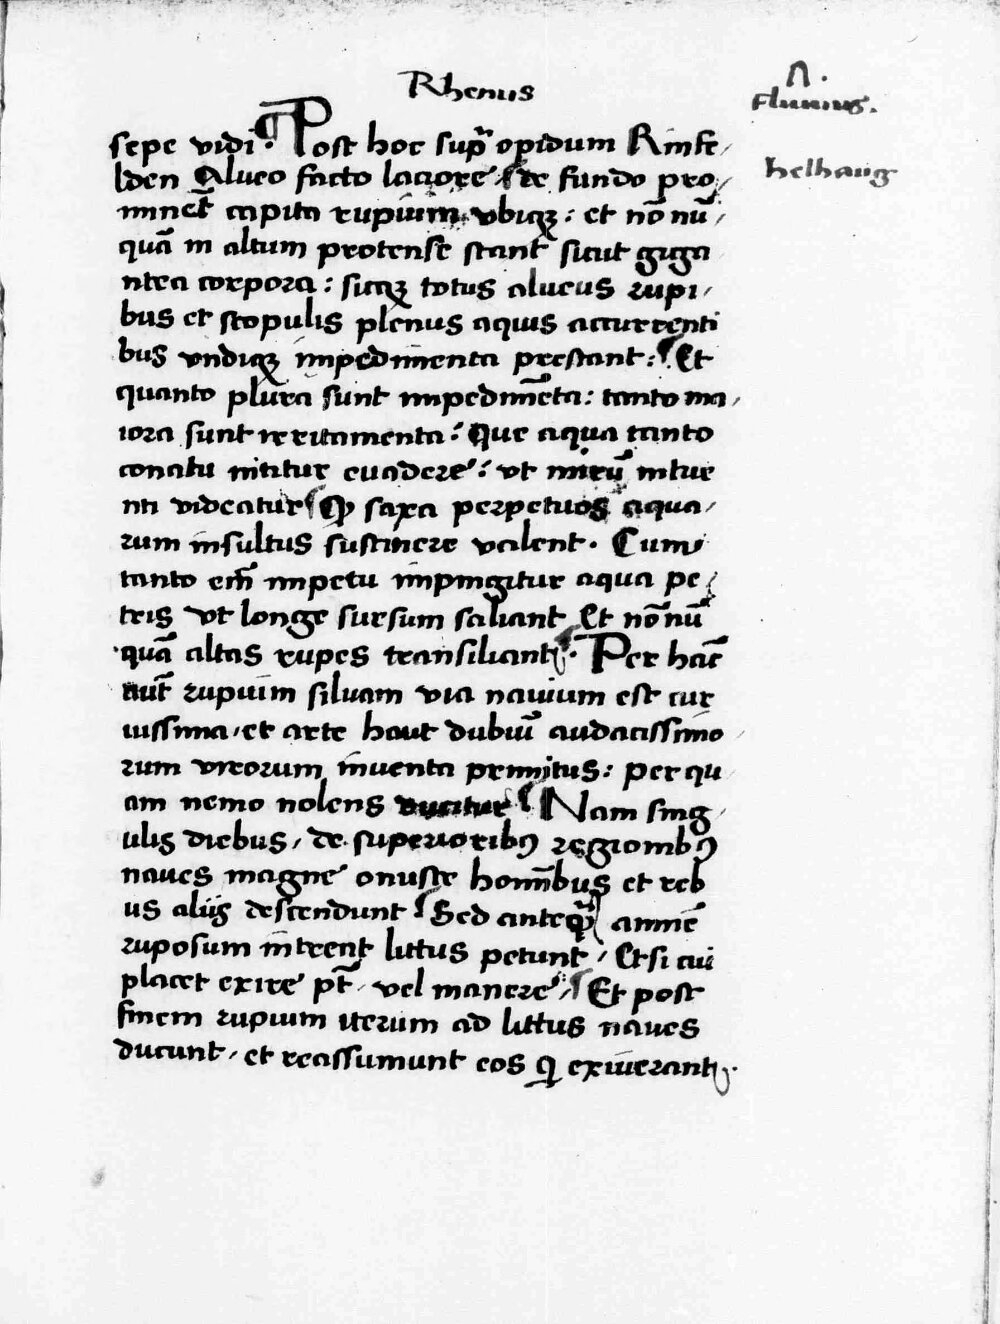 Rhenus
Π.
Fluuius.
sepe vidi. ¶ Post hoc supᷓ opidum Rinfe,
helhaug
lden Alueo facto laciore / de fundo pro,
minēt capita rupium vbiqꝫ : et nō nū,
quā in altum protense stant sicut giga
ntea corpora : sicqꝫ totus alueus rupi,
bus et scopulis plenus aquis accurrenti
bus vndiqꝫ impedimenta prestant : Et
quanto plura sunt impedimēta : tanto ma,
iora sunt irritamenta : Que aqua tanto
conatu nititur euadere : vt mirū intue
nti videatur ꝙ saxa perpetuos aqua,
rum insultus sustinere valent . Cum
tanto em̄ impetu impingitur aqua pe,
tris vt longe sursum saliant Et nō nū
quā altas rupes transiliant . Per hāc
aut̄ rupium siluam via nauium est cur
uissima, et arte haut dubiū audacissimo
rum vireorum inuenta primitus : per qu
am nemo nolens ducitur Nam sing,
ulis diebus, de superioribꝯ regionibꝯ
naues magne onuste hoīnbus et reb
us aliis descendunt Sed anteqᷓ amnē
ruposum intrent littus petunt, Et si cui
placet exire pt̄, vel manere, Et post
finem rupium iterum ad littus naues
ducunt, et reassumunt eos qui exiuerant.